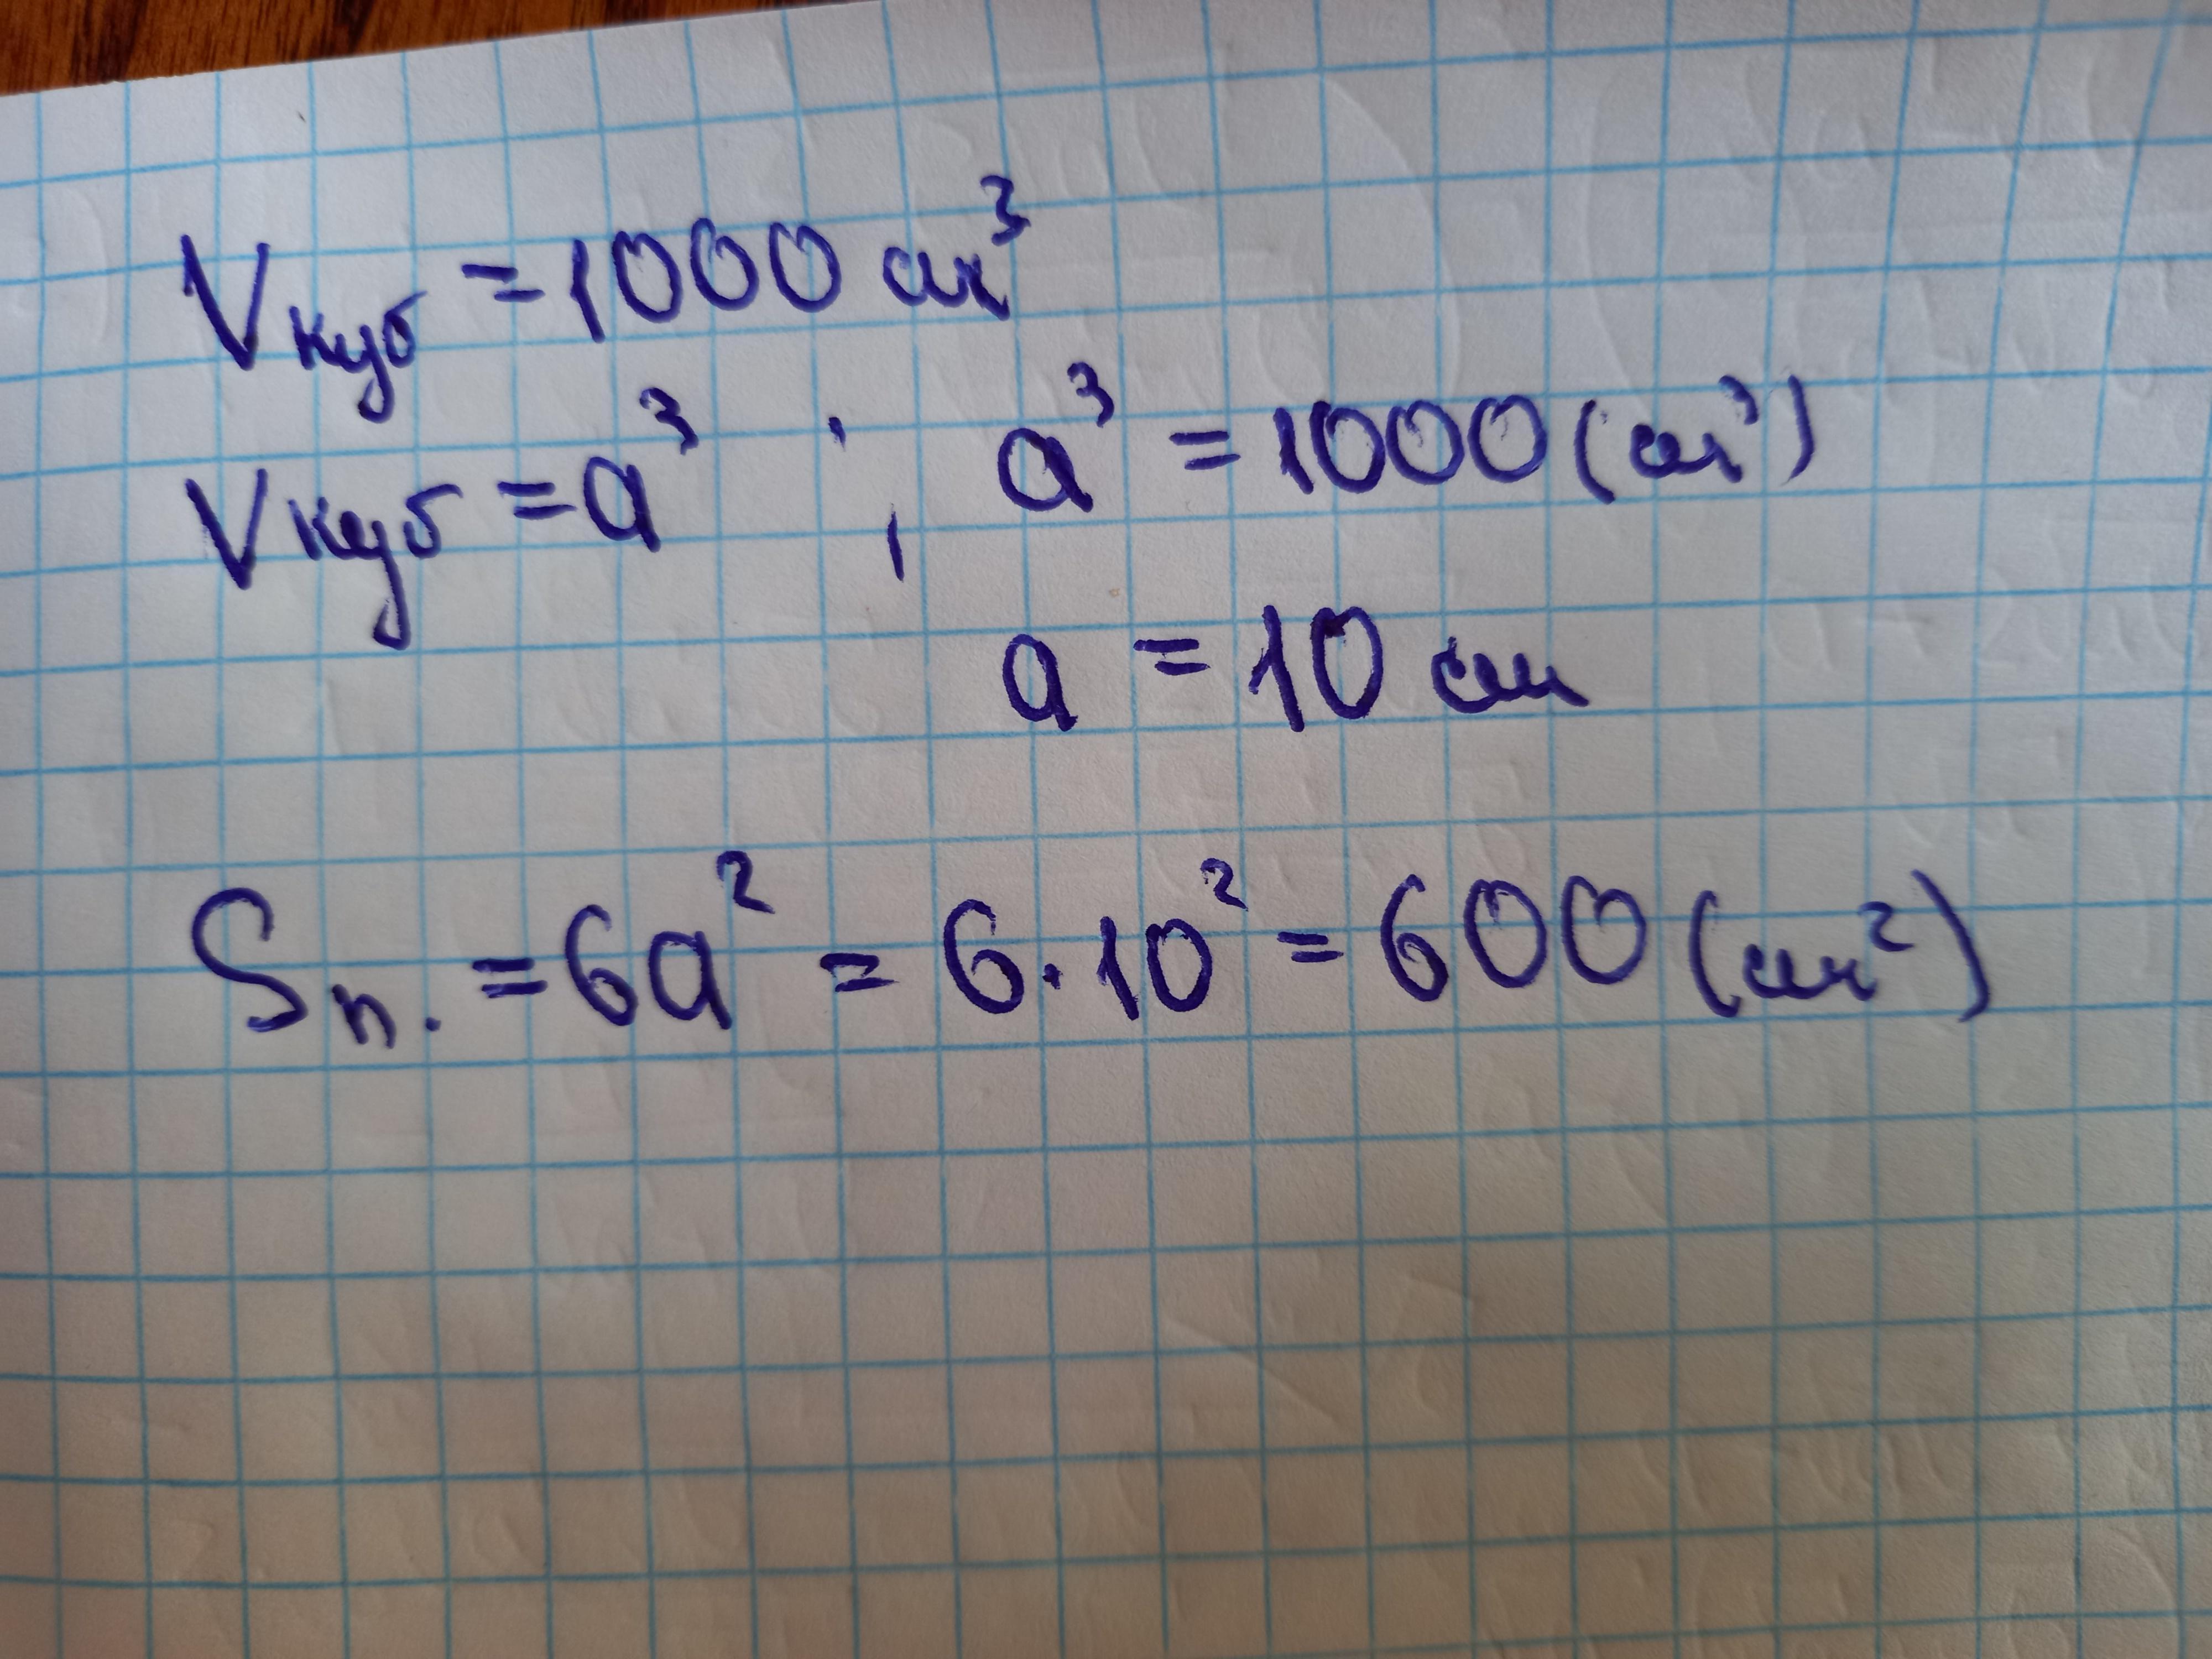 Vкуб = 1000 см³
Vкуб = a³ ; a³ = 1000 (см³)
a = 10 см
Sп. = 6a² = 6 · 10² = 600 (см²)